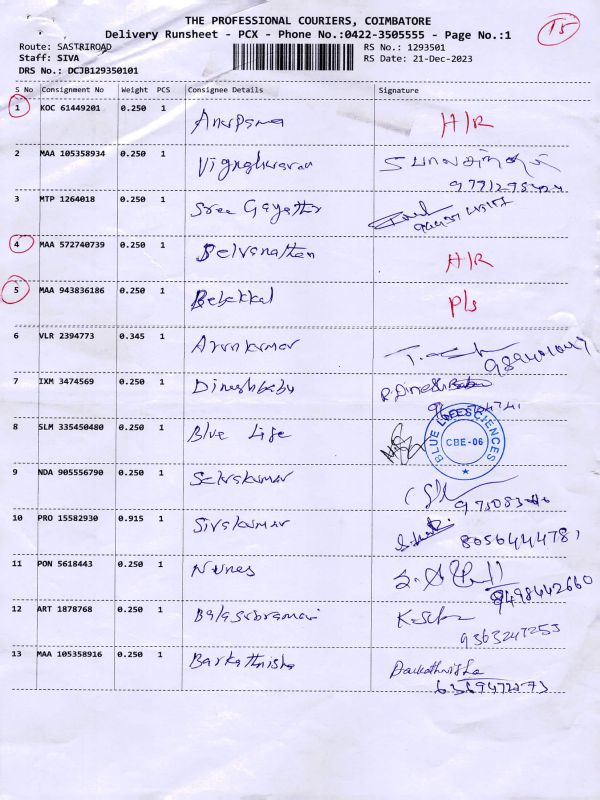 THE PROFESSIONAL COURIERS, COIMBATORE
Delivery Runsheet - PCX - Phone No.:0422-3505555 - Page No.:1
Route: SASTRIROAD RS No.: 1293501
Staff: SIVA RS Date: 21-Dec-2023
DRS No.: DCJB129350101
S No Consignment No Weight PCS Consignee Details Signature
1 KOC 61449201 0.250 1 Anupama H/R
2 MAA 105358934 0.250 1 Vigneshwaran
3 MTP 1264018 0.250 1 Sree Gayathri
4 MAA 572740739 0.250 1 Selvanathan H/R
5 MAA 943836186 0.250 1 Bebekkal P/s
6 VLR 2394773 0.345 1 Arunkumar
7 IXM 3474569 0.250 1 Dineshbabu R. Dinesh Babu
8 SLM 335450480 0.250 1 Blue Life
BLUE LIFESCIENCES
CBE-06
9 NDA 905556790 0.250 1 Selvakumar
10 PRO 15582930 0.915 1 Sivakumar
8056444781
11 PON 5618443 0.250 1 Nunes
8498442660
12 ART 1878768 0.250 1 Balasubramani
9363247253
13 MAA 105358916 0.250 1 Barkathnisha Barkathnisha